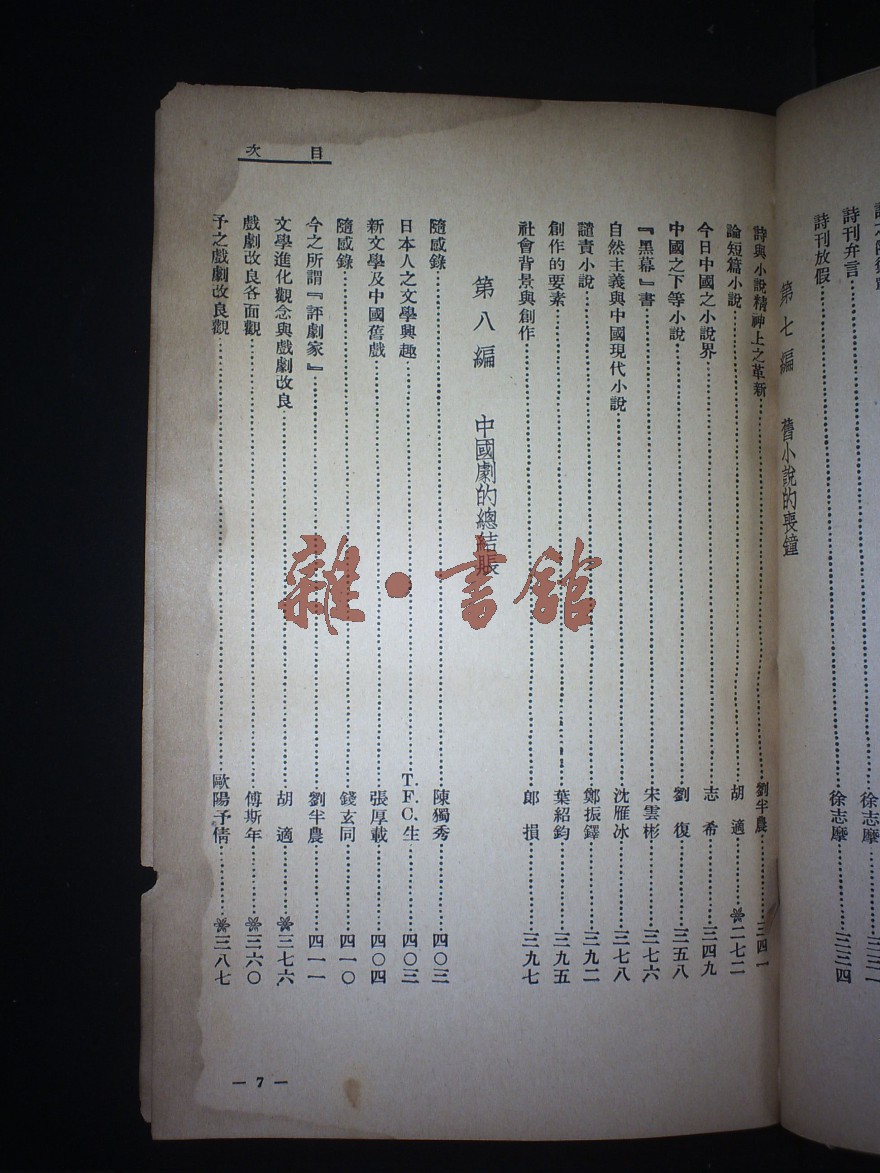 詩刊弁言
徐志摩
詩刊放假
徐志摩
三三四
第七編 舊小說的喪鐘
目次
詩與小說精神上之革新 劉半農 三四一
論短篇小說 胡適 ※二七二
今日中國之小說界 志希 三四九
中國之下等小說 劉復 三五八
『黑幕』書 宋雲彬 三七六
自然主義與中國現代小說 沈雁冰 三七八
譴責小說 鄭振鐸 三九二
創作的要素 葉紹鈞 三九五
社會背景與創作 郎損 三九七
第八編 中國劇的總結賬
隨感錄 陳獨秀 四〇三
日本人之文學興趣 T.F.C.生 四〇三
新文學及中國舊戲 張厚載 四〇四
隨感錄 錢玄同 四一〇
今之所謂『評劇家』 劉半農 四一一
文學進化觀念與戲劇改良 胡適 ※三七六
戲劇改良各面觀 傅斯年 ※三六〇
予之戲劇改良觀 歐陽予倩 ※三八七
— 7 —
雜·書館